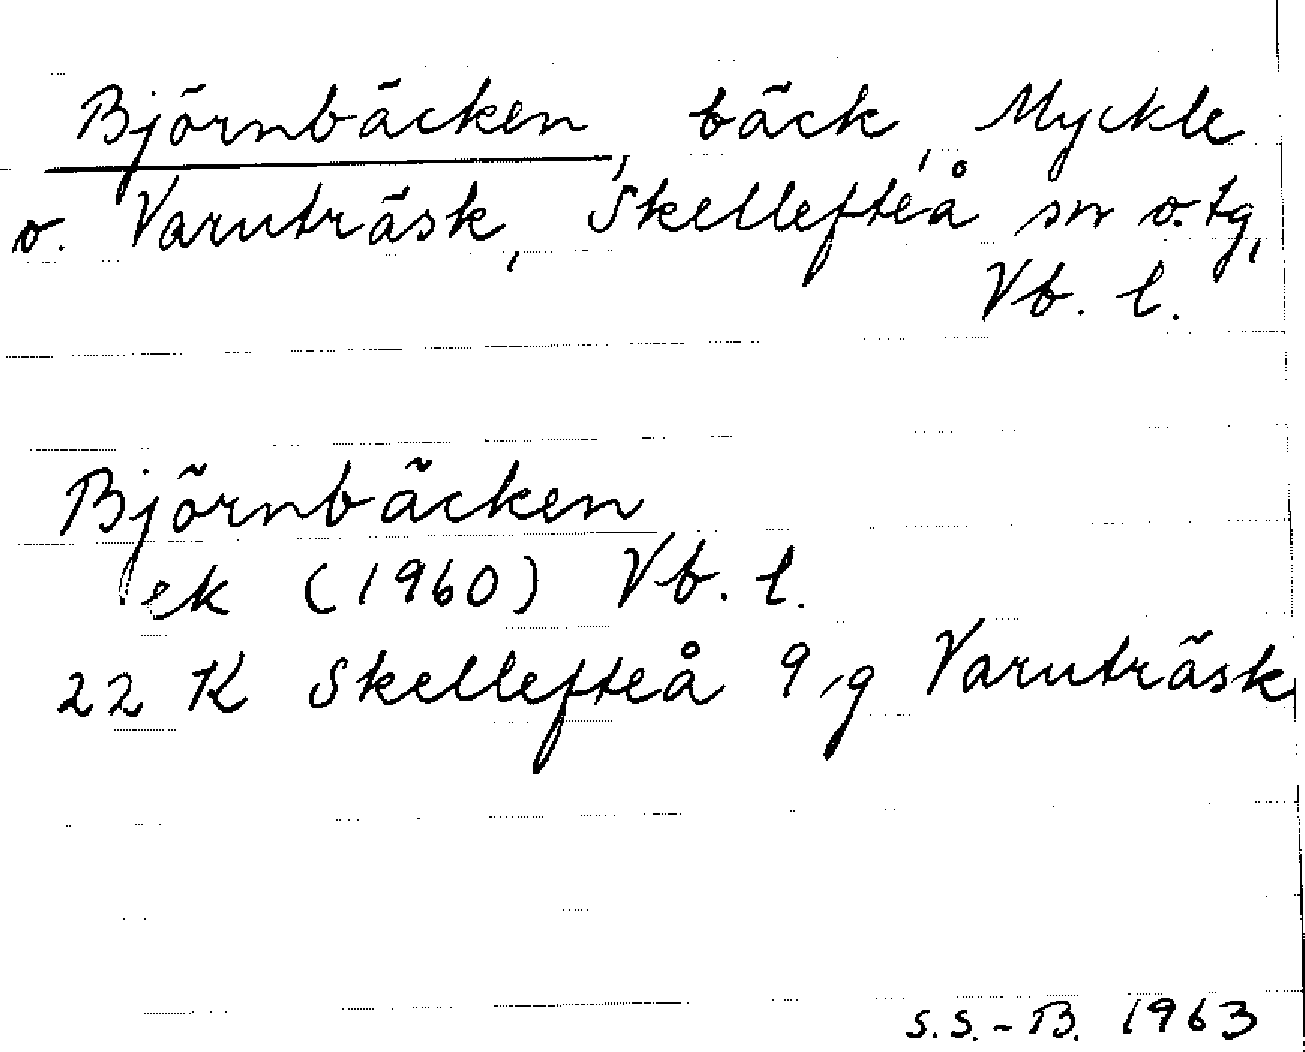 Björnbäcken, bäck, Myckle
o. Varuträsk, Skellefteå sn o. tg,
Vb. l.
Björnbäcken
ek (1960) Vb. l.
22 K Skellefteå 9, g Varuträsk
S.S.-B. 1963